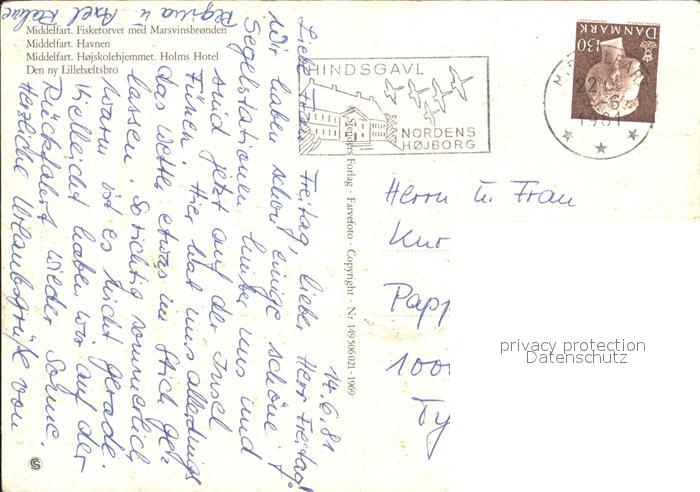 Middelfart. Fisketorvet med Marsvinsbrønden
Middelfart. Havnen
Middelfart. Højskolehjemmet. Holms Hotel
Den ny Lillebæltsbro
HINDSGAVL
NORDENS
HØJBORG
130
DANMARK
1981
Forlag - Farvefoto - Copyright - Nr 149506021 - 1969
14.6.81
Liebe Frau Freitag, lieber Herr Freitag!
Wir haben schon einige schöne
Segelstationen hinter uns und
sind jetzt auf der Insel
Fünen. Hier hat uns allerdings
das Wetter etwas im Stich ge-
lassen. So richtig sommerlich
warm ist es nicht gerade.
Vielleicht haben wir auf der
Rückfahrt wieder Sonne.
Herzliche Urlaubsgrüße von
Regina u. Axel
Herrn u. Frau
Kur
Papp
100
Ty
privacy protection
Datenschutz